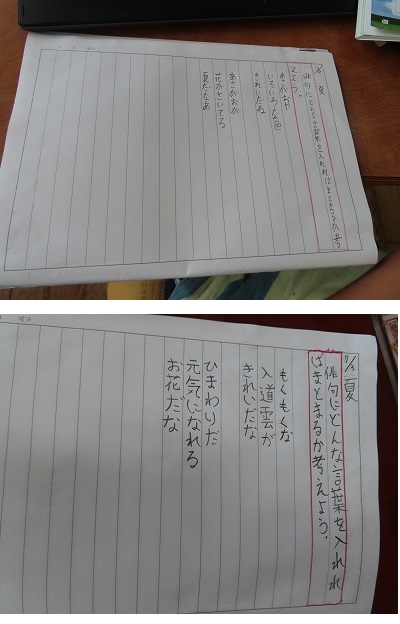 夏
俳句にどんな言葉を入れればまとまるか考
えよう。
あさがおや
いろいろな色
きれいだね
あさがおが
花がさいてる
夏だなあ
7/3 夏
俳句にどんな言葉を入れれ
ばまとまるか考えよう。
もくもくな
入道雲が
きれいだな
ひまわりだ
元気になれる
お花だな